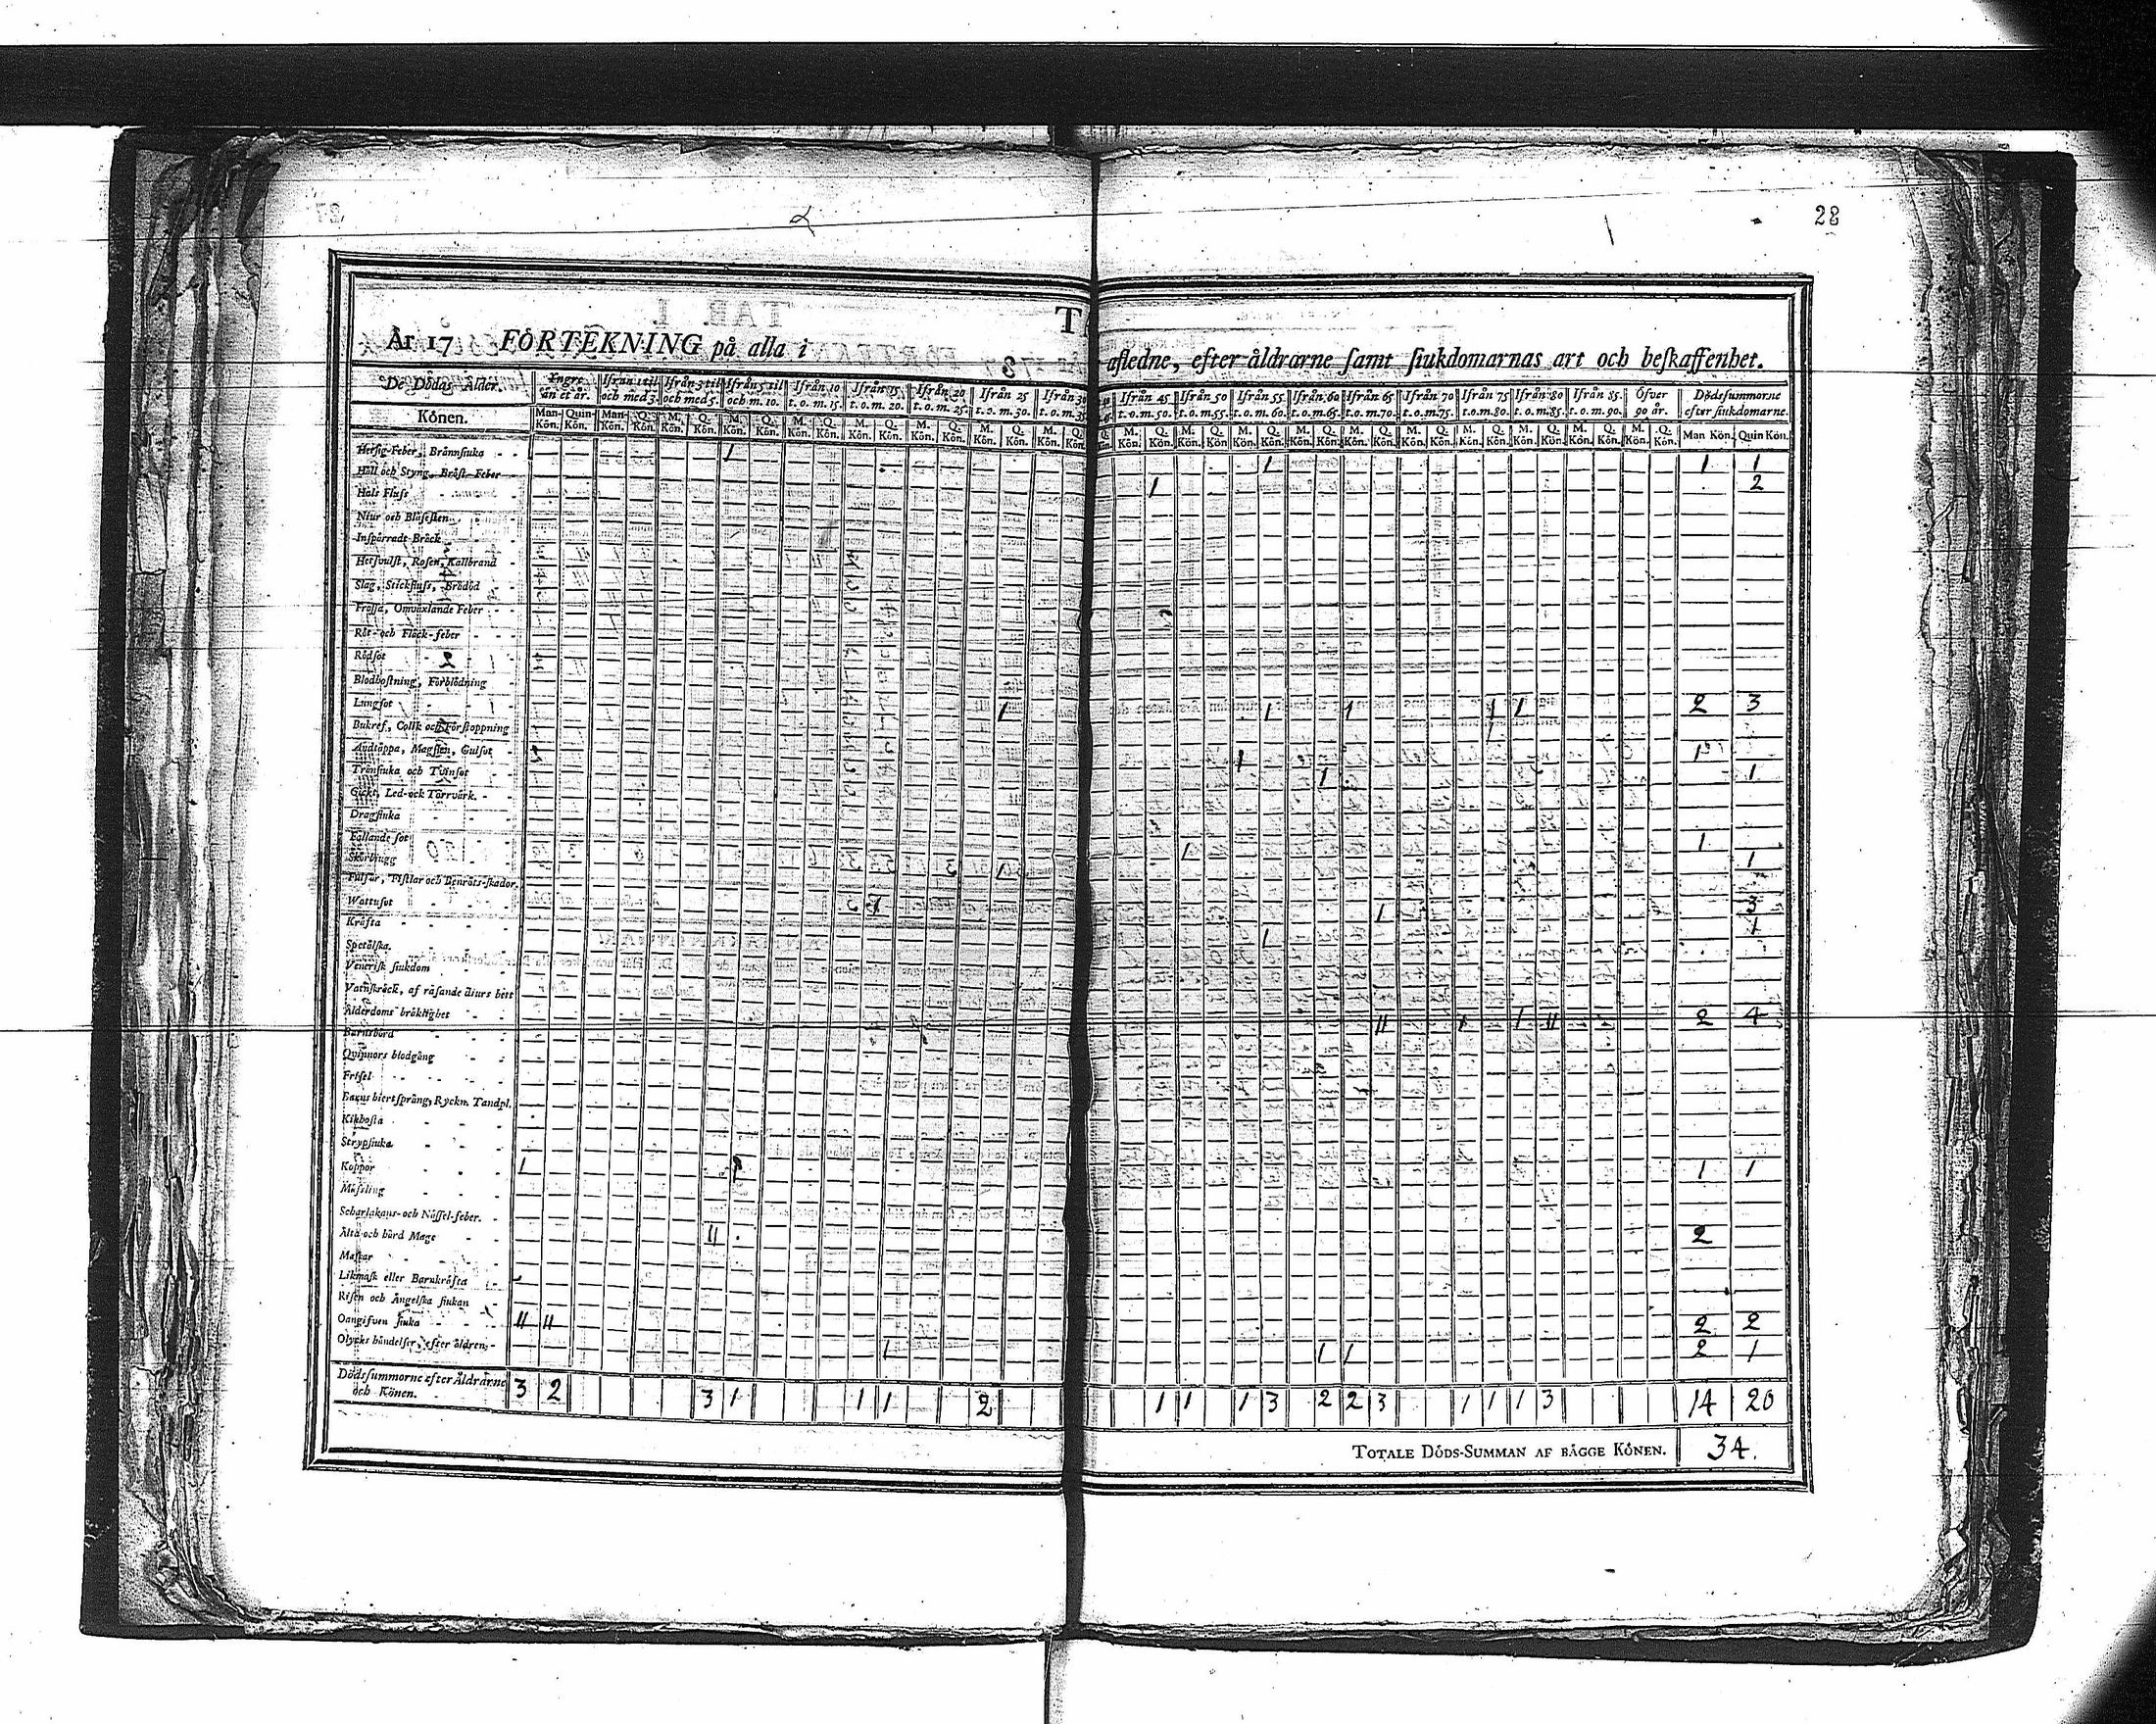 28
År 17 FÖRTEKNING på alla i afledne, efter åldrarne samt siukdomarnas art och beskaffenhet.
De Dödas Ålder. Yngre än et år. Ifrån 1 til och med 3. Ifrån 3 til och med 5. Ifrån 5 til och m. 10. Ifrån 10 t. o. m. 15. Ifrån 15 t. o. m. 20. Ifrån 20 t. o. m. 25. Ifrån 25 t. o. m. 30. Ifrån 30 Ifrån 45 t. o. m. 50. Ifrån 50 t. o. m. 55. Ifrån 55 t. o. m. 60. Ifrån 60 t. o. m. 65. Ifrån 65 t. o. m. 70. Ifrån 70 t. o. m. 75. Ifrån 75 t. o. m. 80. Ifrån 80 t. o. m. 85. Ifrån 85 t. o. m. 90. Öfver 90 år. Dödssummorne efter siukdomarne.
Könen. Man Kön. Quin Kön. Man Kön. Q. Kön. M. Kön. Q. Kön. M. Kön. Q. Kön. M. Kön. Q. Kön. M. Kön. Q. Kön. M. Kön. Q. Kön. M. Kön. Q. Kön. M. Kön. Q. Kön. M. Kön. Q. Kön. M. Kön. Q. Kön. M. Kön. Q. Kön. M. Kön. Q. Kön. M. Kön. Q. Kön. M. Kön. Q. Kön. M. Kön. Q. Kön. M. Kön. Q. Kön. M. Kön. Q. Kön. M. Kön. Q. Kön. Man Kön. Quin Kön.
Hetsig-Feber, Brännsiuka 1 1 1 1
Håll och Styng, Bröst-Feber 1 2
Hals Fluss
Niur och Blåsesten
Inspärradt Bråck
Hetsvulst, Rosen, Kallbrand
Slag, Stickfluss, Brådöd
Frossa, Omväxlande Feber
Röt- och Fläck-feber
Rödsot
Blodhostning, Förblödning
Lungsot 1 1 1 1 1 2 3
Bukref, Colik och Förstoppning
Andtäppa, Magsten, Gulsot 1 1
Tränsiuka och Tvinsot 1 1
Gickt, Led- och Torrvärk.
Dragsiuka
Fallande sot 1 1
Skörbiugg 1 1
Fulsår, Fistlar och Benröts-skador.
Wattusot 1 3
Kräfta 1 1
Spetälska.
Venerisk siukdom
Vatnskräck, af rasande diurs bett
Ålderdoms bräklighet II 1 1 II 2 4
Barnsbörd
Qvinnors blodgång
Frisel
Barns hiertsprång, Ryckn. Tandpl.
Kikhosta
Strypsiuka
Koppor 1 1 1
Mässling
Scharlakans- och Nässel-feber.
Älta och hård Mage II 2
Maskar
Likmask eller Barnkräfta
Risen och Ängelska siukan
Oangifven siuka II II 2 2
Olycks händelser, efter åldren, 1 1 1 2 1
Dödssummorne efter Åldrarne och Könen. 3 2 3 1 1 1 2 1 1 1 3 2 2 3 1 1 1 3 14 20
TOTALE DÖDS-SUMMAN AF BÄGGE KÖNEN. 34.